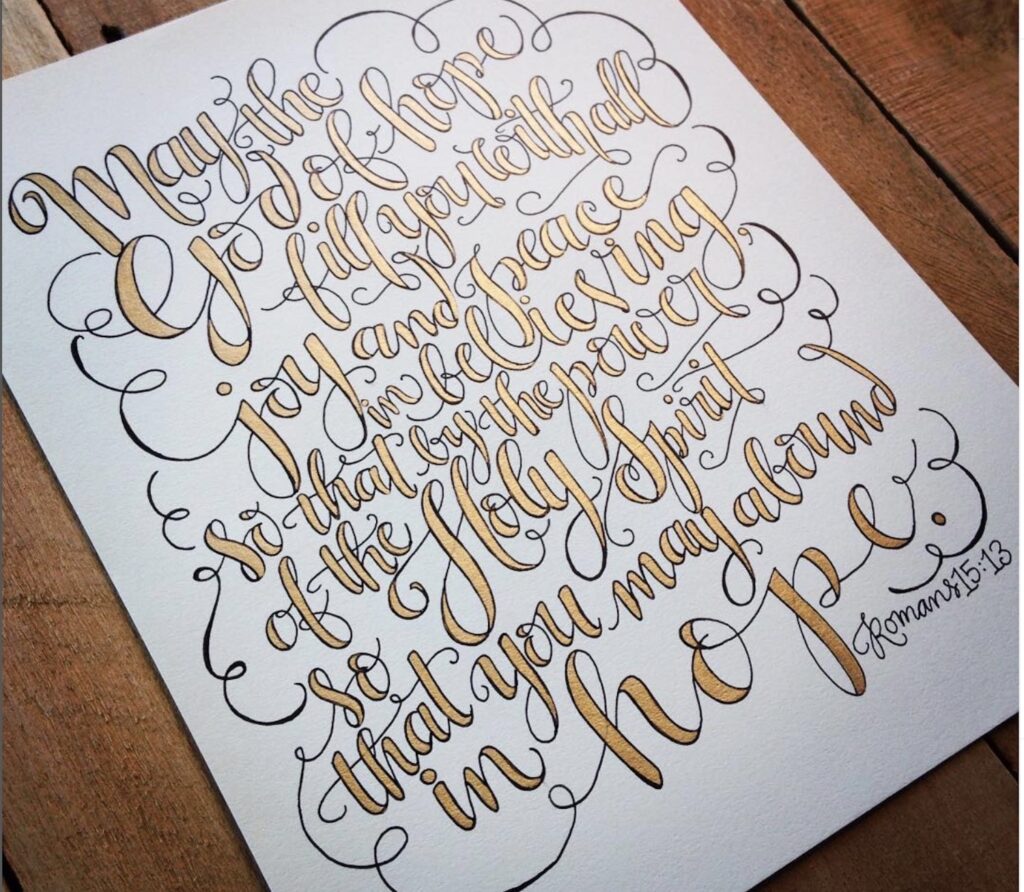 May the
God of hope
fill you with all
joy and peace
in believing,
so that by the power
of the Holy Spirit
so
that you may abound
in hope.
Romans 15:13